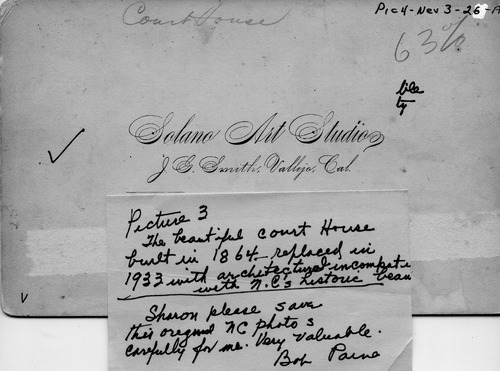 Court House
Pic4-Nev 3-26-A
63
Solano Art Studio
J. G. Smith, Vallejo, Cal.
Picture 3
The beautiful court House
built in 1864 replaced in
1933 with architectural incompati
with N.C's historic beau
Sharon please save
this original NC photo s
carefully for me. Very valuable.
Bob Paine